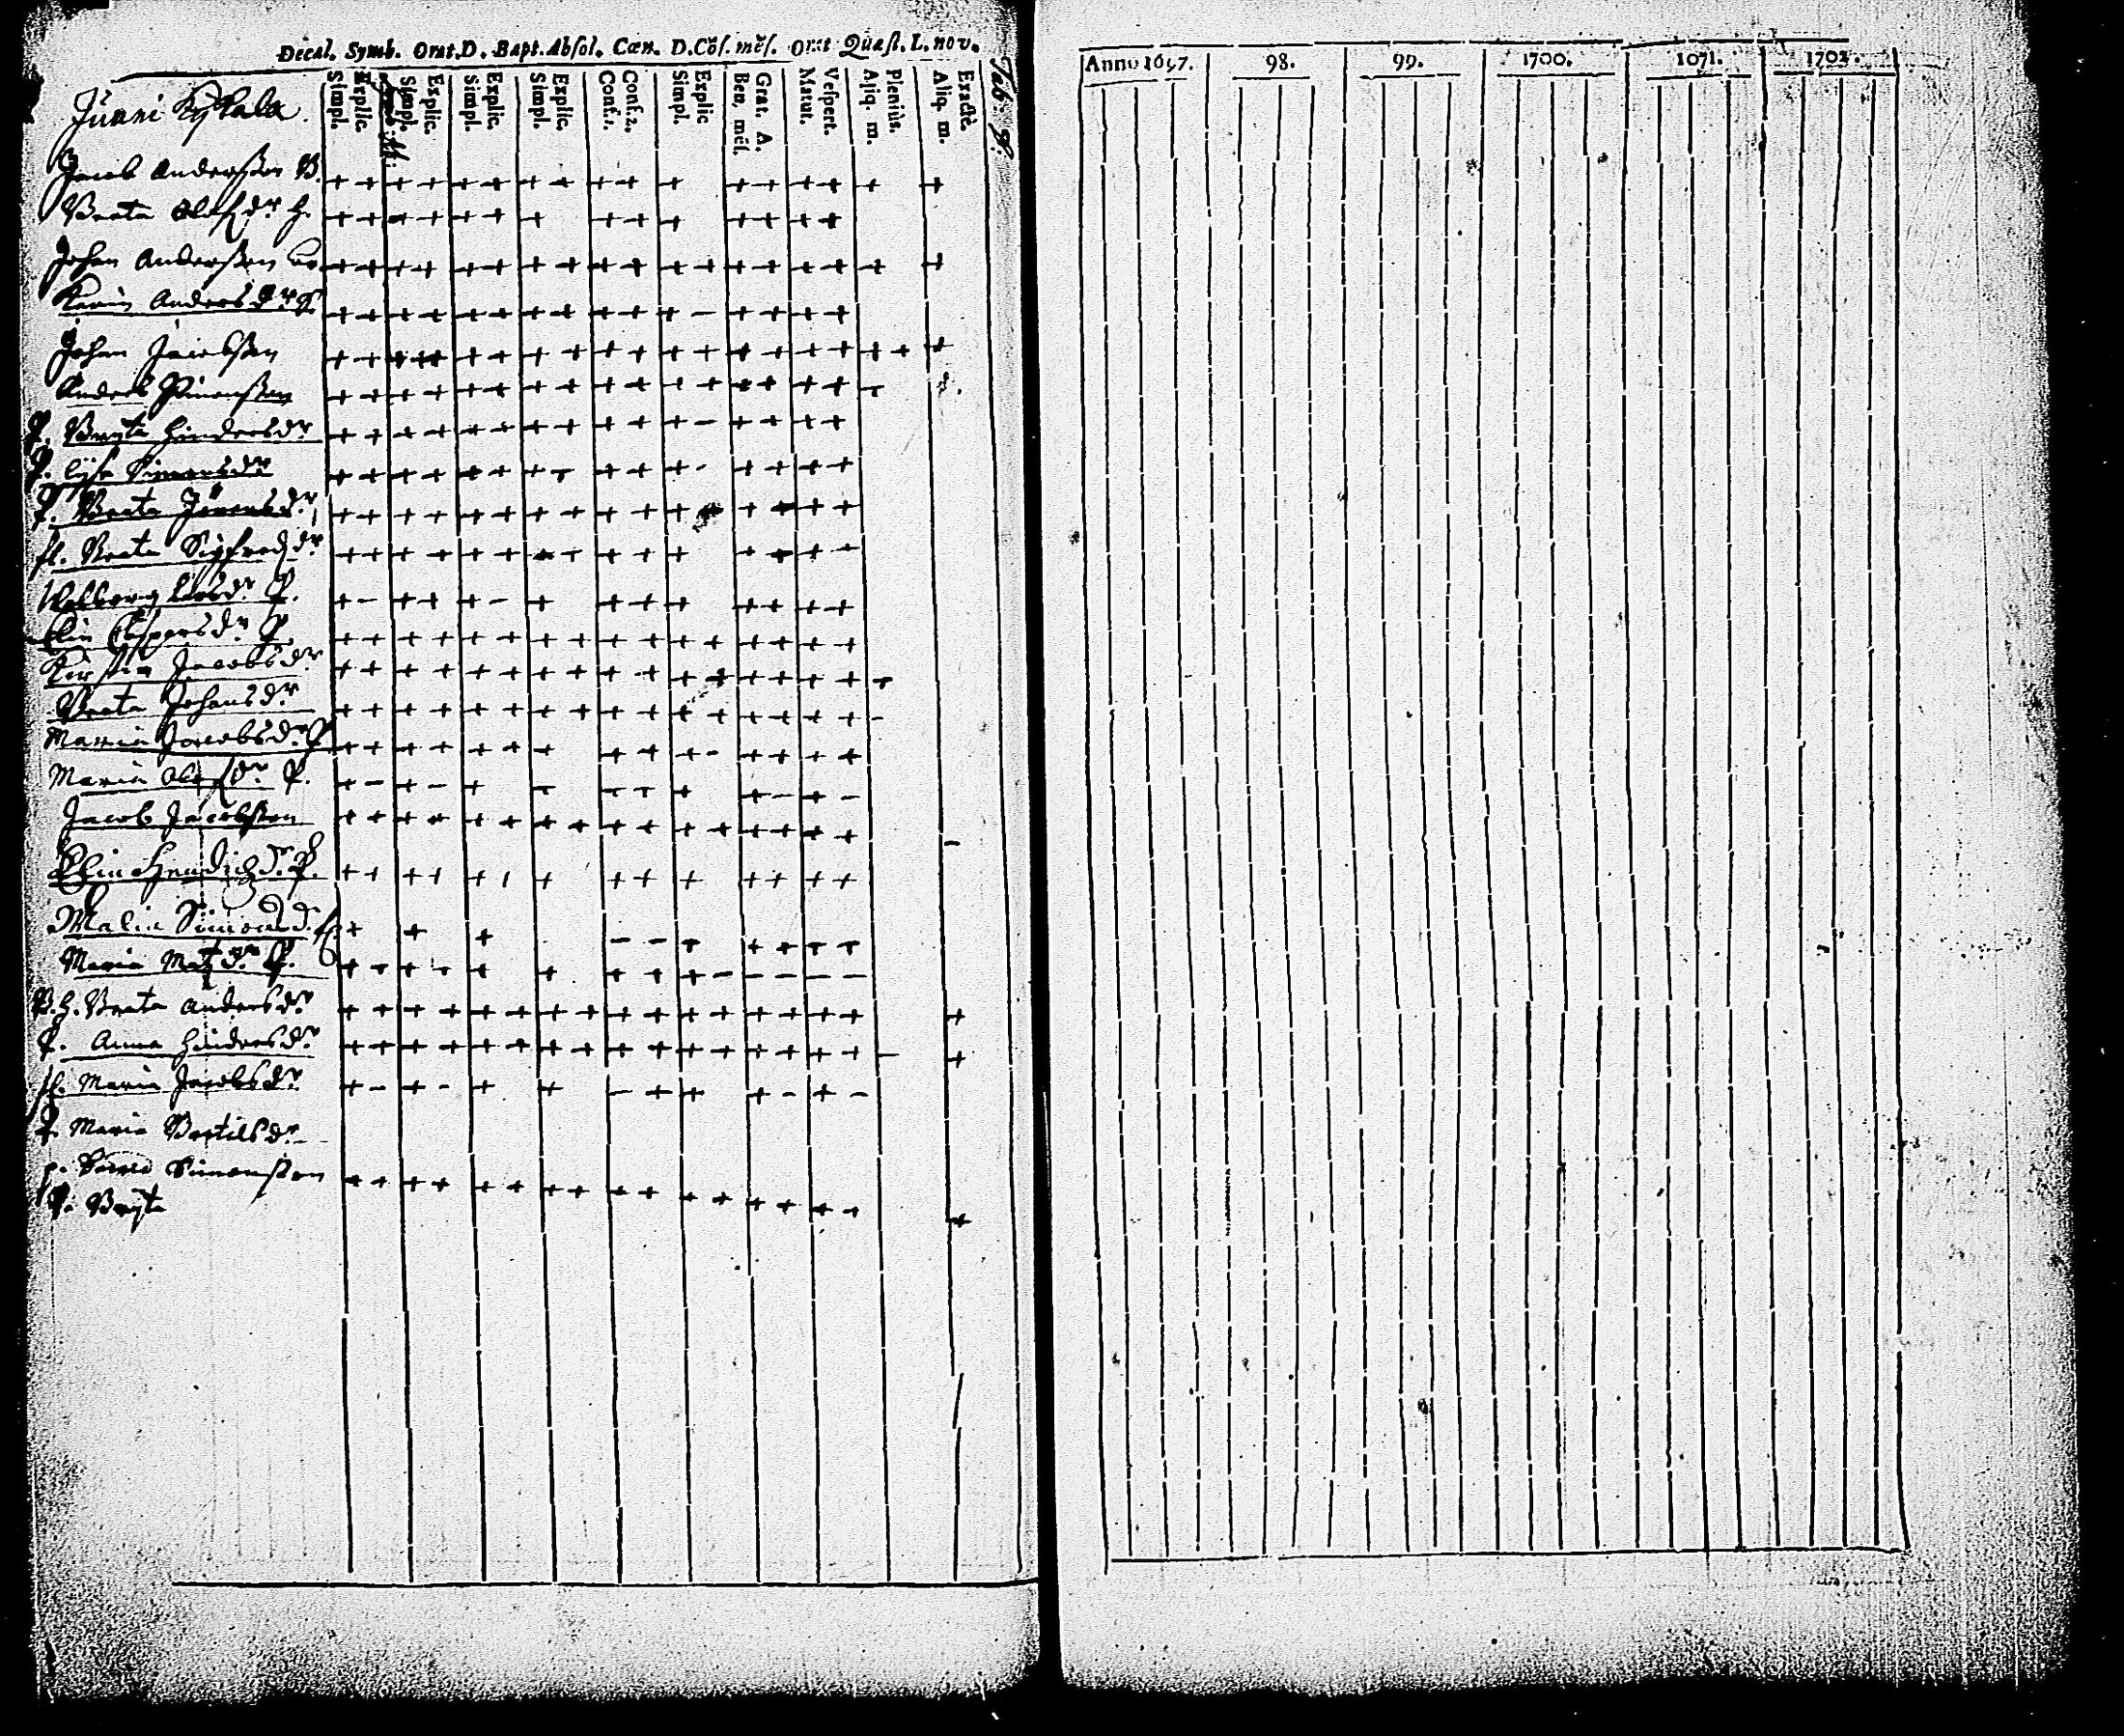 Decal. Symb. Orat.D. Bapt. Absol. Cœn. D. Cõf. mẽs. Orat Quæst. L. nov.
Simpl. Explic. Simpl. Explic. Simpl. Explic. Simpl. Explic. Conf.1. Conf.2. Simpl. Explic Ben. mẽs. Grat. A. Matut. Vespert. Aliq. m. Pleniùs. Aliq. m. Exactè.
Juani Kylala.
Jacob Andersson B.
Beata Olofzdr h.
Johan Andersson
Karin Andersdr
Johan Jacobsson
Anders Simonsson
P. Brijta Hindersdr
P. Lijsa Simonsdr
P. Beata Jönensdr
fl. Beata Sigfredzdr
Walborg Larsdr P.
Elin Caspersdr P.
Kirstin Jacobsdr
Beata Johansdr
Maria Jacobsdr P
Maria Olofzdr P.
Jacob Jacobsson
Elin Hendichzdr. P.
Malin Simonsd.
Maria Matzdr P.
B. h. Beata Andersdr
P. Anna Hindersdr
fl. Maria Jacobsdr
P. Maria Bertilsdr
p. Simonsson
P. Brijta
Anno 1697. 98. 99. 1700. 1071. 1702.